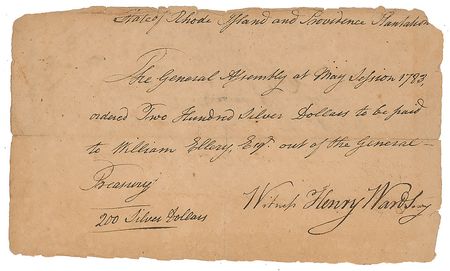 State of Rhode Island and Providence Plantation
The General Assembly at May Session 1783,
ordered Two Hundred Silver Dollars to be paid
to William Ellery, Esqr. out of the General
Treasury
200 Silver Dollars
Witness Henry Ward Secry